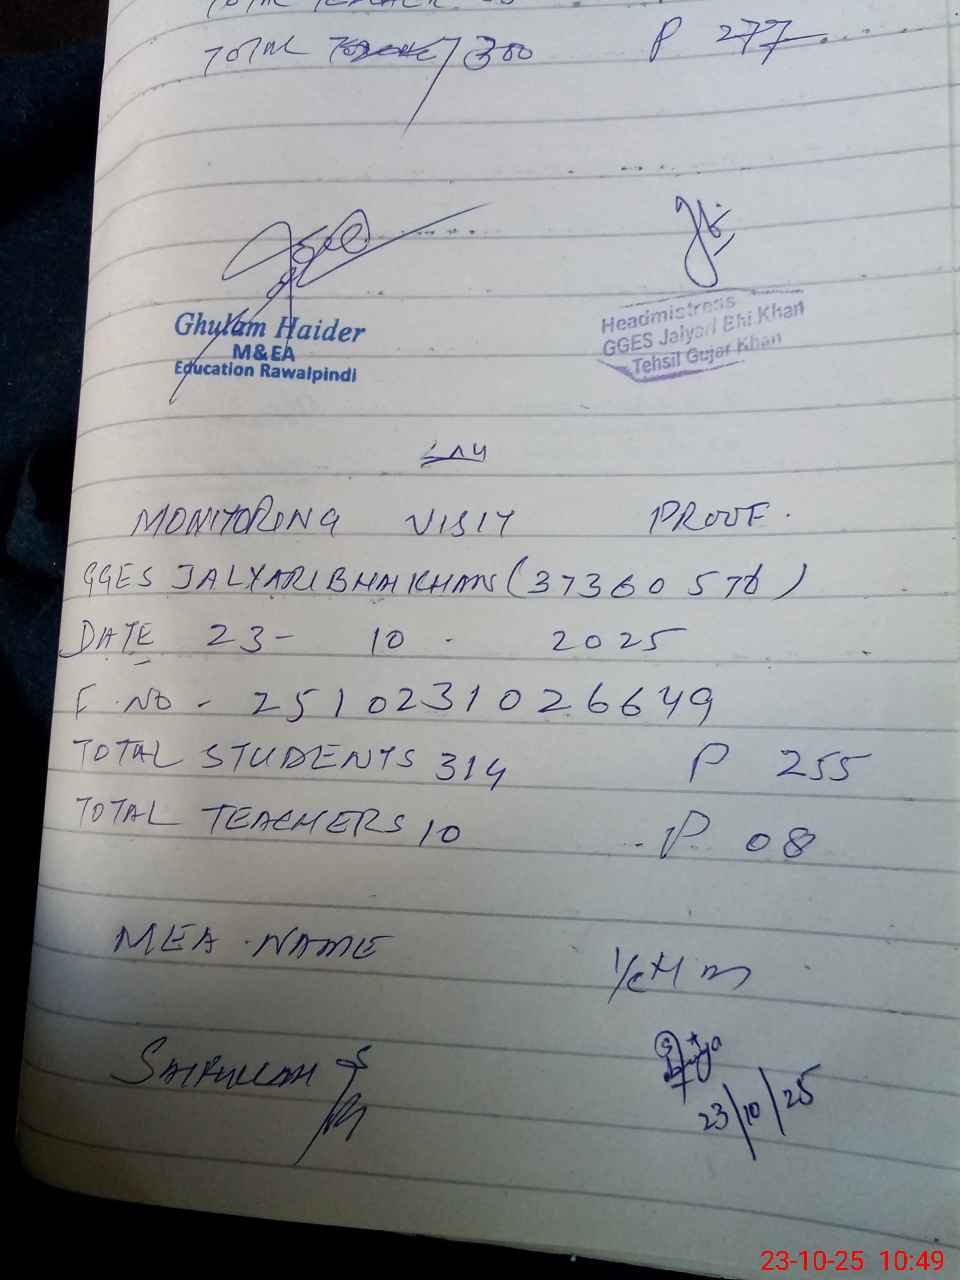 TOTAL TEACHER
TOTAL 300 P 277
Ghulam Haider
M&EA
Education Rawalpindi
Headmistress
GGES Jalyari Bhi Khan
Tehsil Gujar Khan
MONITORING VISIT PROOF.
GGES JALYARI BHAI KHAN (37360576)
DATE 23- 10 - 2025
F. NO - 2510231026649
TOTAL STUDENTS 314 P 255
TOTAL TEACHERS 10 P 08
MEA NAME
SAIFULLAH
23/10/25
23-10-25 10:49